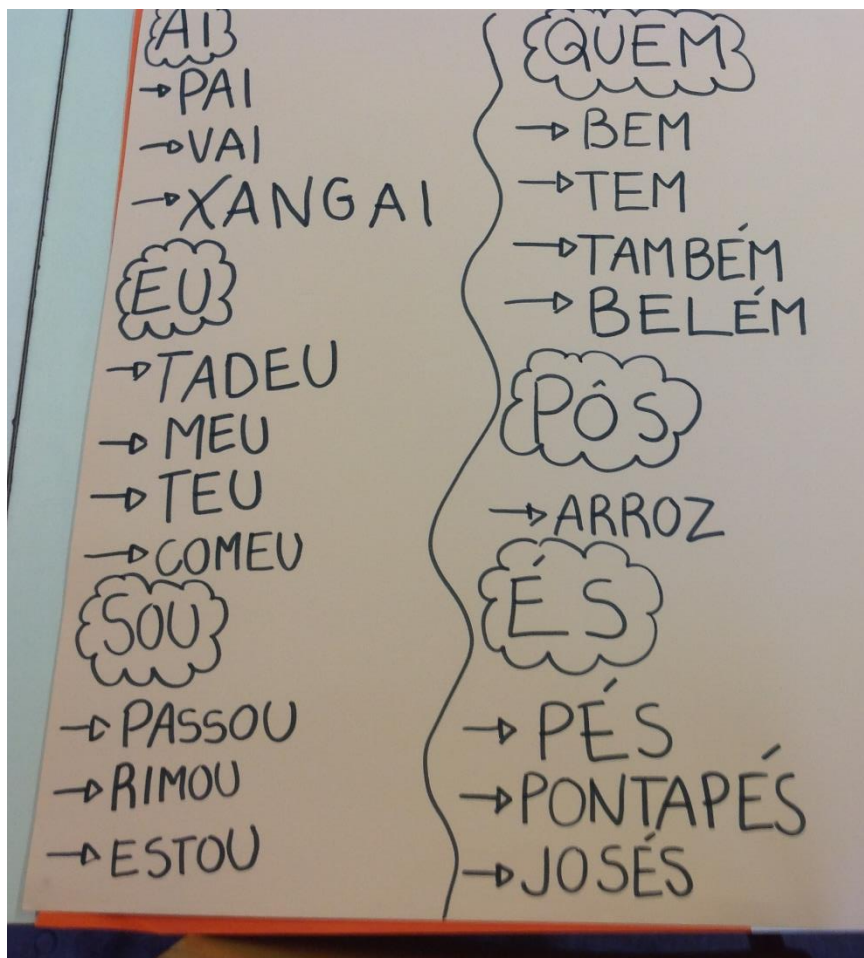 AI
PAI
VAI
XANGAI
EU
TADEU
MEU
TEU
COMEU
SOU
PASSOU
RIMOU
ESTOU
QUEM
BEM
TEM
TAMBÉM
BELÉM
PÔS
ARROZ
ÉS
PÉS
PONTAPÉS
JOSÉS